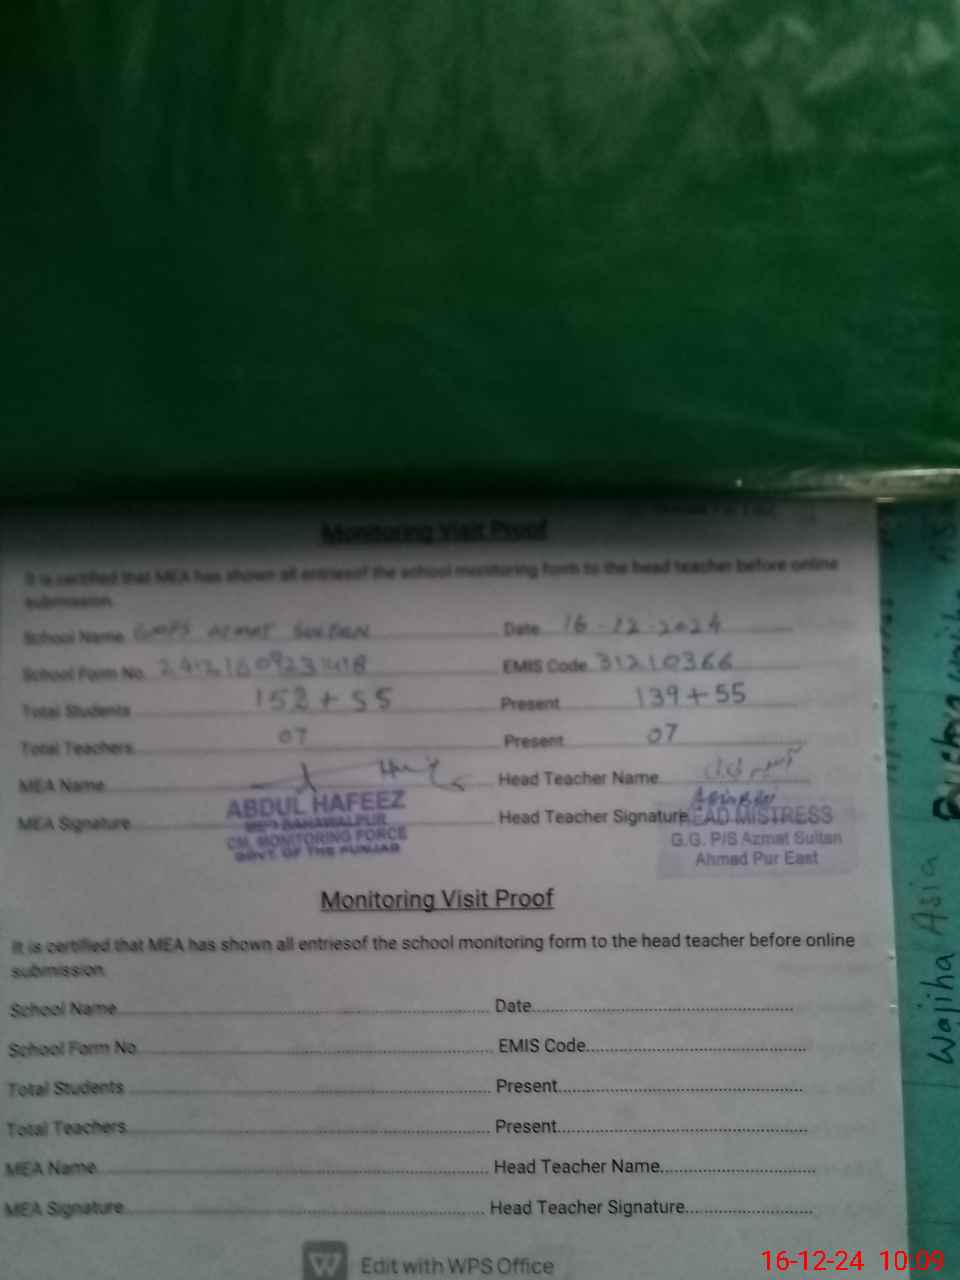 Monitoring Visit Proof
It is certified that MEA has shown all entriesof the school monitoring form to the head teacher before online
submission.
School Name GGPS AZMAT SULTAN Date 16-12-2024
School Form No. EMIS Code 31210366
Total Students 152+55 Present 139+55
Total Teachers 07 Present 07
MEA Name Head Teacher Name
MEA Signature Head Teacher Signature
ABDUL HAFEEZ
BAHAWALPUR
CM. MONITORING FORCE
GOVT. OF THE PUNJAB
HEAD MISTRESS
G.G. P/S Azmat Sultan
Ahmad Pur East
Monitoring Visit Proof
It is certified that MEA has shown all entriesof the school monitoring form to the head teacher before online
submission.
School Name Date
School Form No EMIS Code
Total Students Present
Total Teachers Present
MEA Name Head Teacher Name
MEA Signature Head Teacher Signature
Edit with WPS Office
Wajiha Asia
16-12-24 10:09